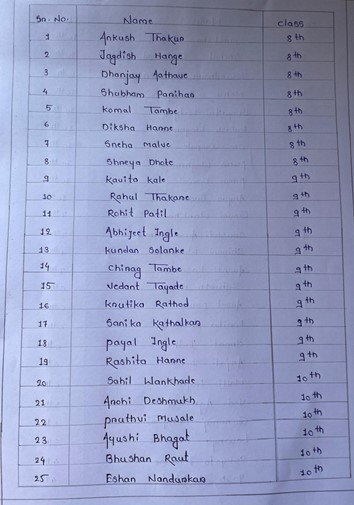 Sr. No. Name Class
1 Ankush Thakur 8th
2 Jagdish Hange 8th
3 Dhanjay Aathave 8th
4 Shubham Parihar 8th
5 Komal Tambe 8th
6 Diksha Harne 8th
7 Sneha Malve 8th
8 Shreya Dhote 8th
9 Kavita Kale 9th
10 Rahul Thakare 9th
11 Rohit Patil 9th
12 Abhijeet Ingle 9th
13 Kundan Solanke 9th
14 Chirag Tambe 9th
15 Vedant Tayade 9th
16 Krutika Rathod 9th
17 Sanika Kathalkar 9th
18 Payal Ingle 9th
19 Rashita Harne 9th
20 Sahil Wankhade 10th
21 Arohi Deshmukh 10th
22 Pruthvi Musale 10th
23 Ayushi Bhagat 10th
24 Bhushan Raut 10th
25 Eshan Nandurkar 10th